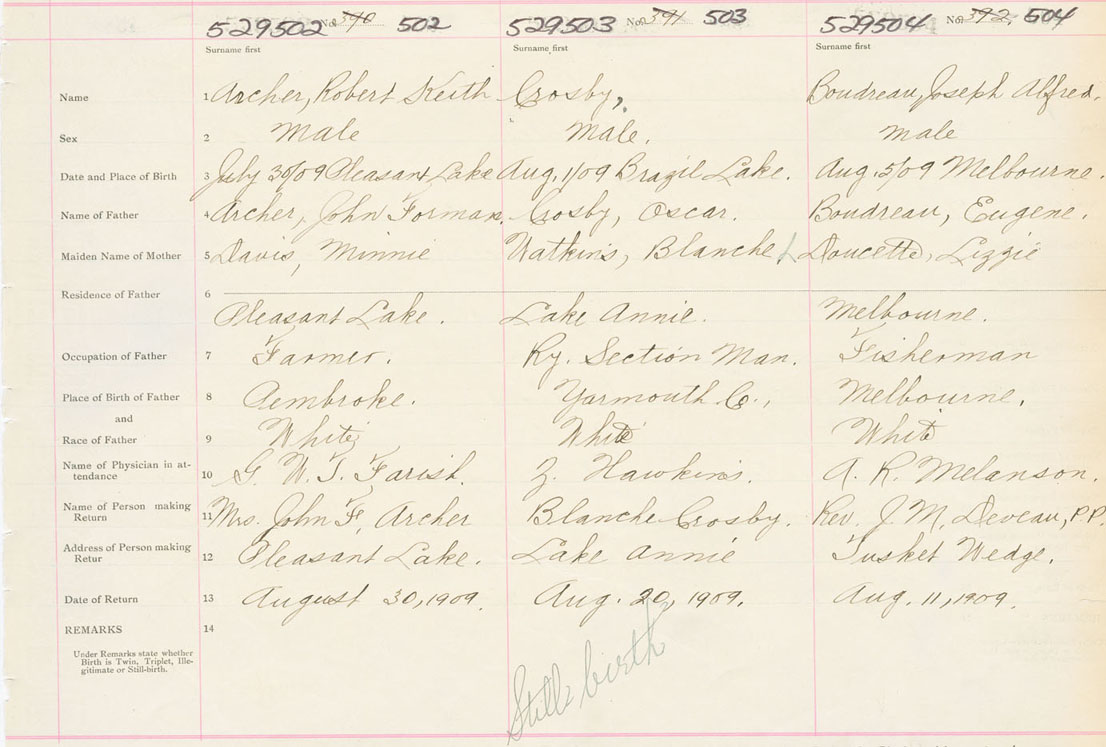 529502 No. 390 502 529503 No. 391 503 529504 No. 392, 504
Surname first Surname first Surname first
Name 1 Archer, Robert Keith Crosby, Boudreau, Joseph Alfred.
Sex 2 Male Male. Male
Date and Place of Birth 3 July 30/09 Pleasant Lake Aug. 1/09 Brazil Lake. Aug. 5/09 Melbourne.
Name of Father 4 Archer, John Forman. Crosby, Oscar. Boudreau, Eugene.
Maiden Name of Mother 5 Davis, Minnie Watkins, Blanche Doucette, Lizzie
Residence of Father 6
Pleasant Lake. Lake Annie. Melbourne.
Occupation of Father 7 Farmer. Ry. Section Man. Fisherman
Place of Birth of Father 8 Pembroke. Yarmouth Co., Melbourne.
and
Race of Father 9 White White White
Name of Physician in at-
tendance 10 G. W. T. Farish. Z. Hawkins. A. R. Melanson.
Name of Person making
Return 11 Mrs. John F. Archer Blanche Crosby. Rev. J. M. Deveau, P.P.
Address of Person making
Retur 12 Pleasant Lake. Lake Annie Tusket Wedge.
Date of Return 13 August 30, 1909. Aug. 20, 1909. Aug. 11, 1909.
REMARKS 14
Under Remarks state whether
Birth is Twin, Triplet, Ille-
gitimate or Still-birth.
Still birth